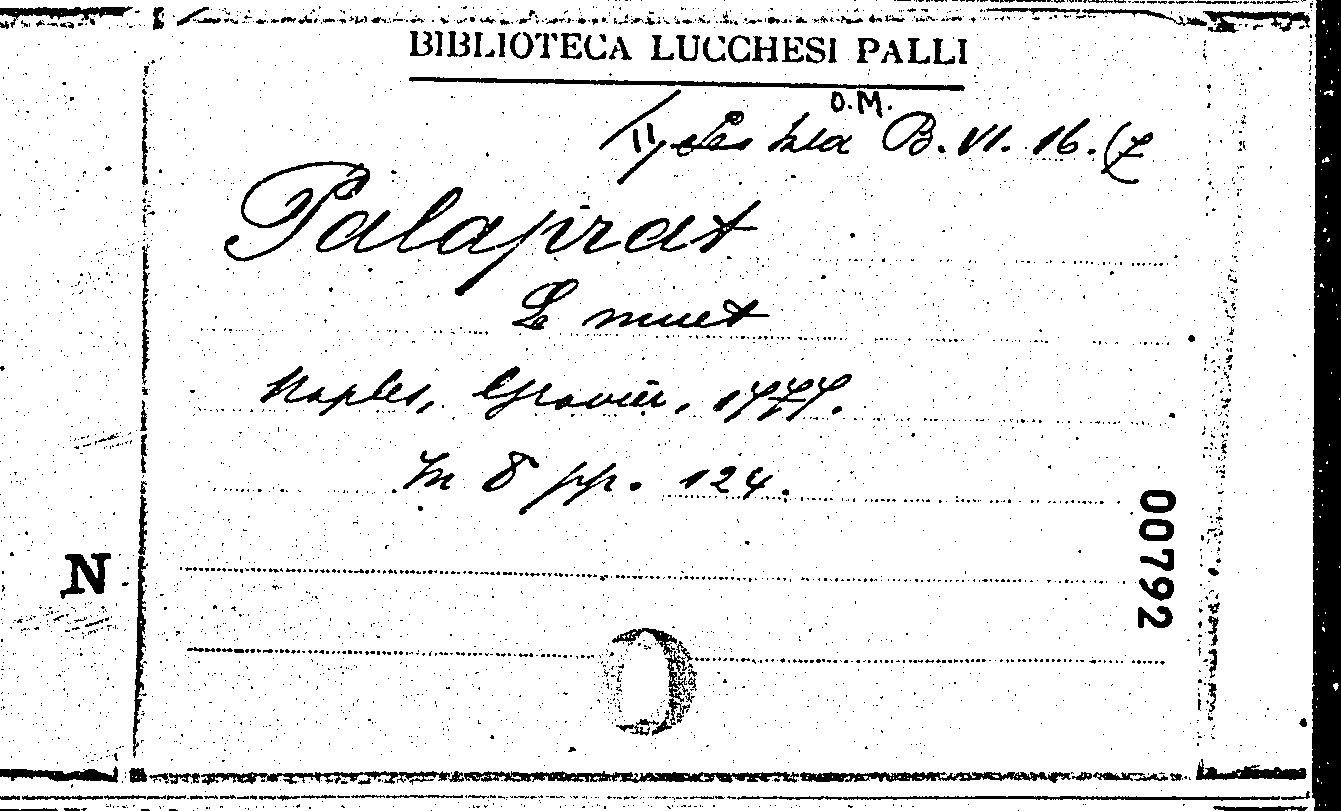 BIBLIOTECA LUCCHESI PALLI
O.M.
B. VI. 16. (7
Palaprat
Le muet
Naples, Gravier, 1777.
In 8 pp. 124.
00792
N